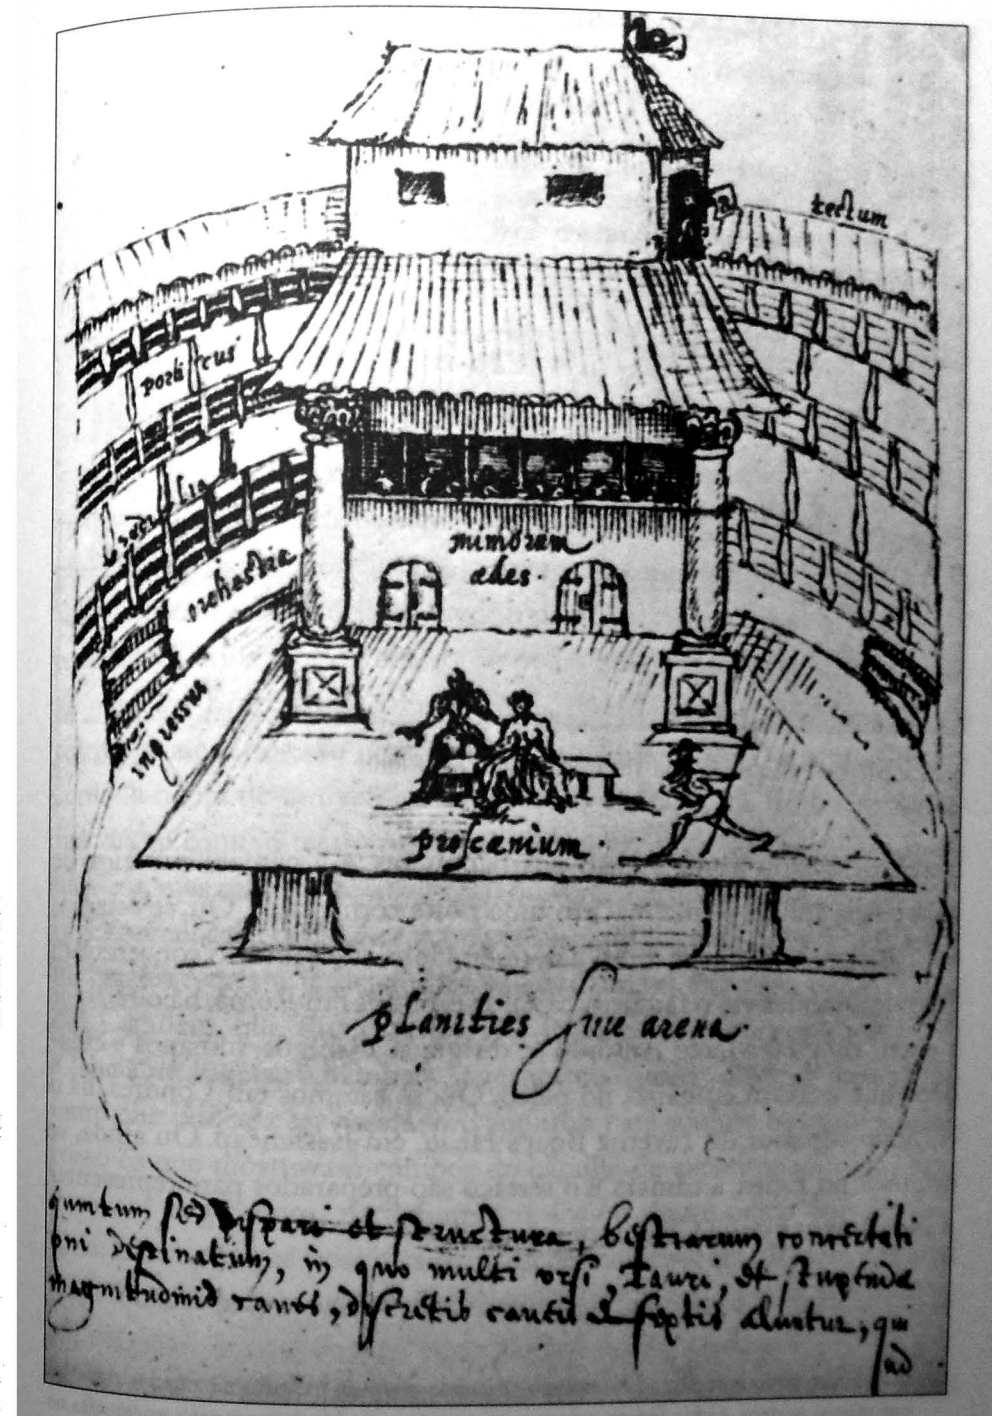 tectum
porticus
sedilia
orchestra
ingressus
mimorum
ædes.
proscænium.
planities siue arena.
quintum sed dispari et structura, bestiarum concertati
oni destinatum, in quo multi vrsi, Tauri, et stupendæ
magnitudinis canes, discretis caueis & septis aluntur, qui
ad